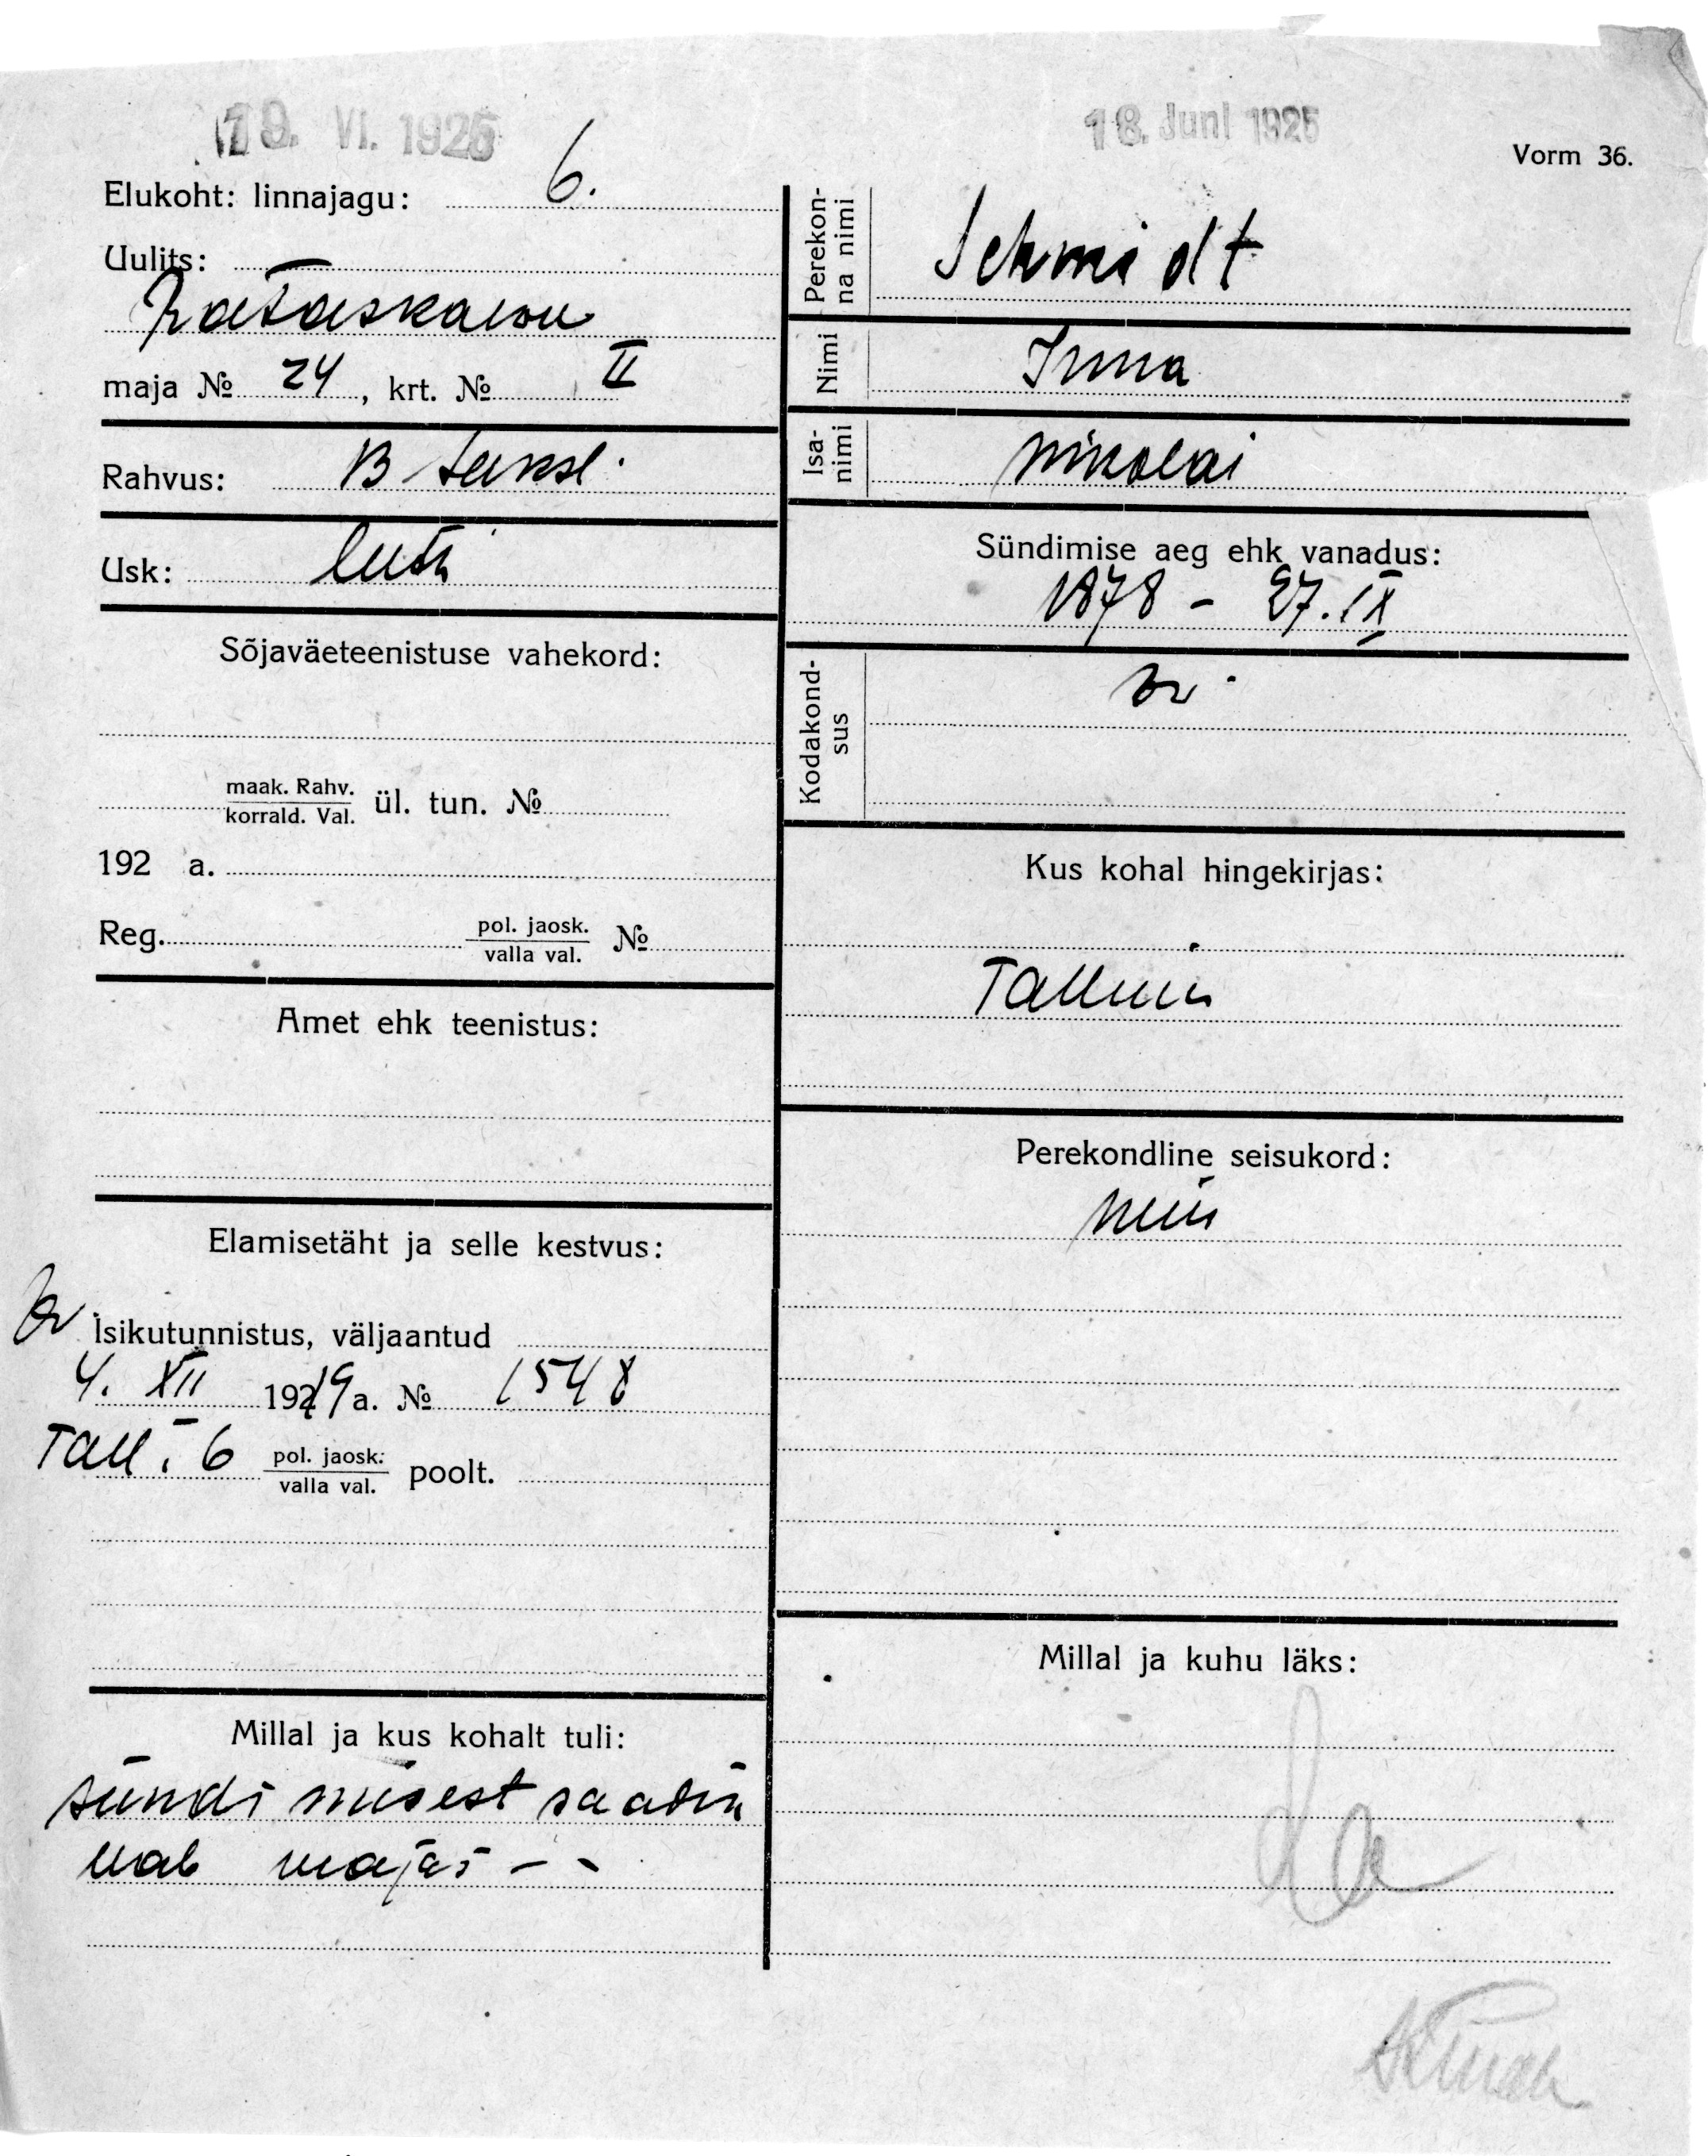 19. VI. 1925
18. Juni 1925
Vorm 36.
Elukoht: linnajagu: 6.
Uulits:
Rataskaevu
maja № 24, krt. № II
Rahvus: B saksl.
Usk: luth
Sõjaväeteenistuse vahekord:
maak. Rahv.
korrald. Val. ül. tun. №
192 a.
Reg. pol. jaosk.
valla val. №
Amet ehk teenistus:
Elamisetäht ja selle kestvus:
Isikutunnistus, väljaantud
4. XII 1919 a. № 1548
Tall. 6 pol. jaosk.
valla val. poolt.
Millal ja kus kohalt tuli:
sündimisest saadik
majas - -
Perekon-
na nimi
Schmidt
Nimi
Inna
Isa-
nimi
Nikolai
Sündimise aeg ehk vanadus:
1878 - 27. IX
Kodakond-
sus
Kus kohal hingekirjas:
Tallinn
Perekondline seisukord:
Millal ja kuhu läks: